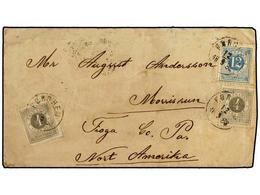 Mr August Anderson
Morrisrun
Tioga Co. Pa.
Nort Amerika
12
4
4